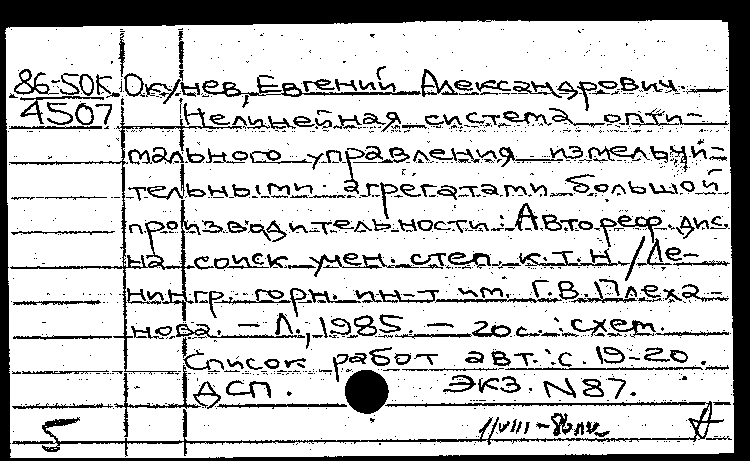 86-50К Окунев, Евгений Александрович.
4507 Нелинейная система опти-
мального управления измельчи-
тельными агрегатами большой
производительности: Автореф. дис.
на соиск. учен. степ. к.т.н / Ле-
нингр. горн. ин-т им. Г.В.Плеха-
нова. – Л., 1985. – 20с.: схем.
Список работ авт.: с. 19-20.
ДСП. ЭКЗ. N87.
5